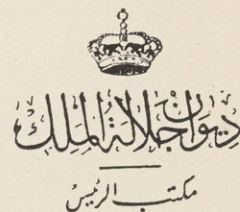 ديوان جلالة الملك
مكتب الرئيس